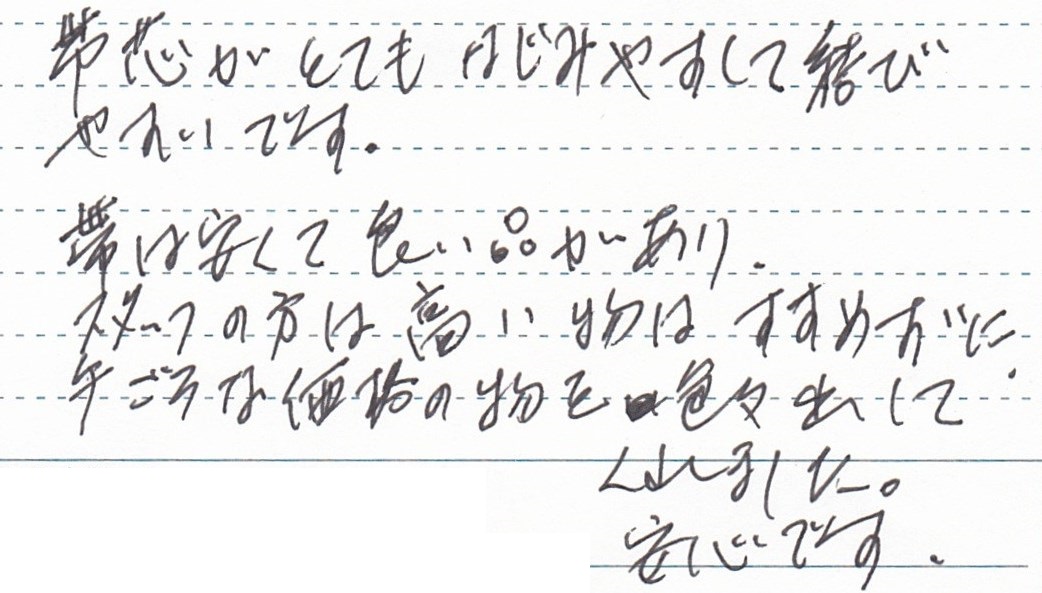 帯芯がとてもなじみやすくて結び
やすいです。
帯は安くて良い品があり、
スタッフの方は高い物はすすめずに、
手ごろな価格の物を色々出して
くれました。
安心です。